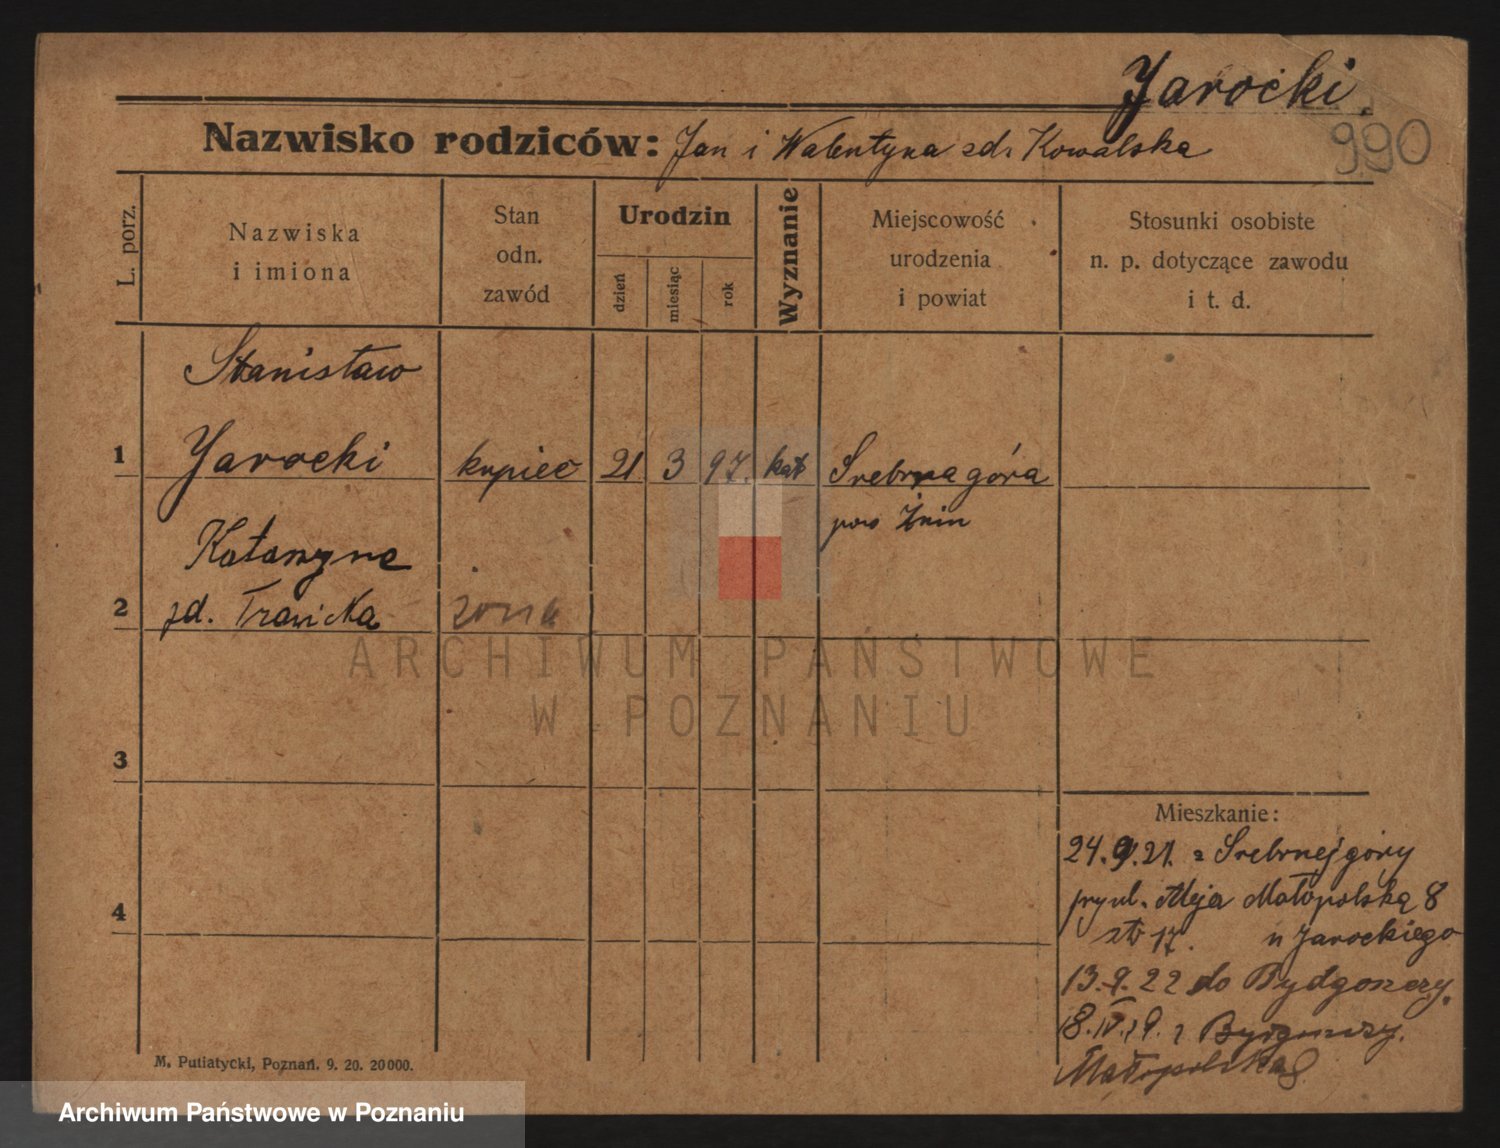 Jarocki
990
Nazwisko rodziców: Jan i Walentyna zd. Kowalska
L. porz.
Nazwiska
i imiona
Stan
odn.
zawód
Urodzin
dzień
miesiąc
rok
Wyznanie
Miejscowość
urodzenia
i powiat
Stosunki osobiste
n. p. dotyczące zawodu
i t. d.
Stanisław
1 Jarocki kupiec 21 3 97. kat Srebrna góra
pow Żnin
Katarzyna
2 zd. żona
ARCHIWUM PAŃSTWOWE
W POZNANIU
3
Mieszkanie:
24.9.21. z Srebrnejgóry
Aleja Małopolską 8
17. u Jarockiego
13.9.22 do Bydgoszczy.
8.IV.29. z Bydgoszczy.
Małopolska 8
4
M. Putiatycki, Poznań. 9. 20. 20000.
Archiwum Państwowe w Poznaniu